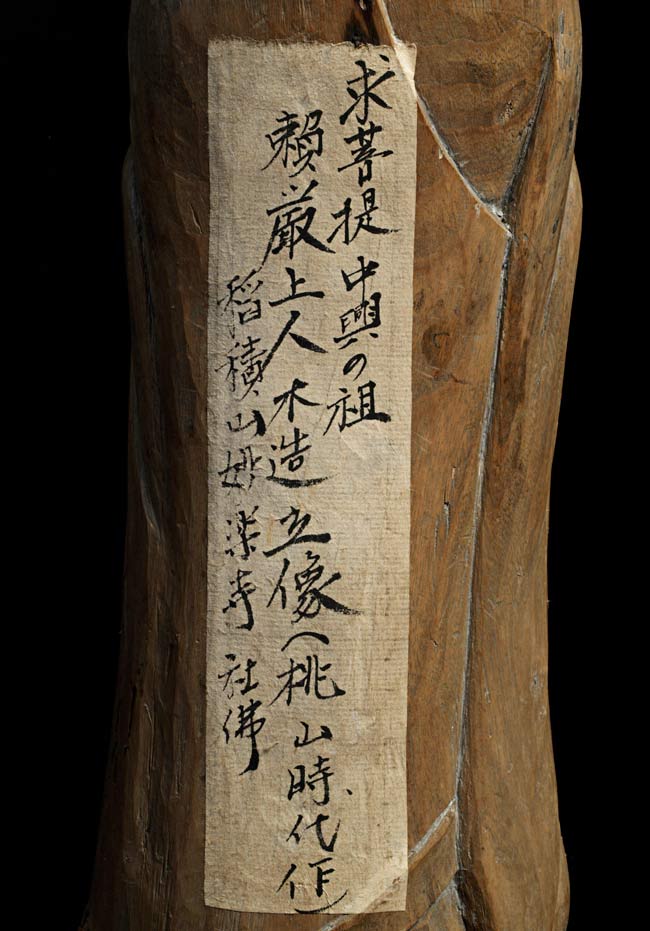 求菩提中興の祖
頼厳上人木造立像（桃山時代作）
稻積山妙楽寺社佛